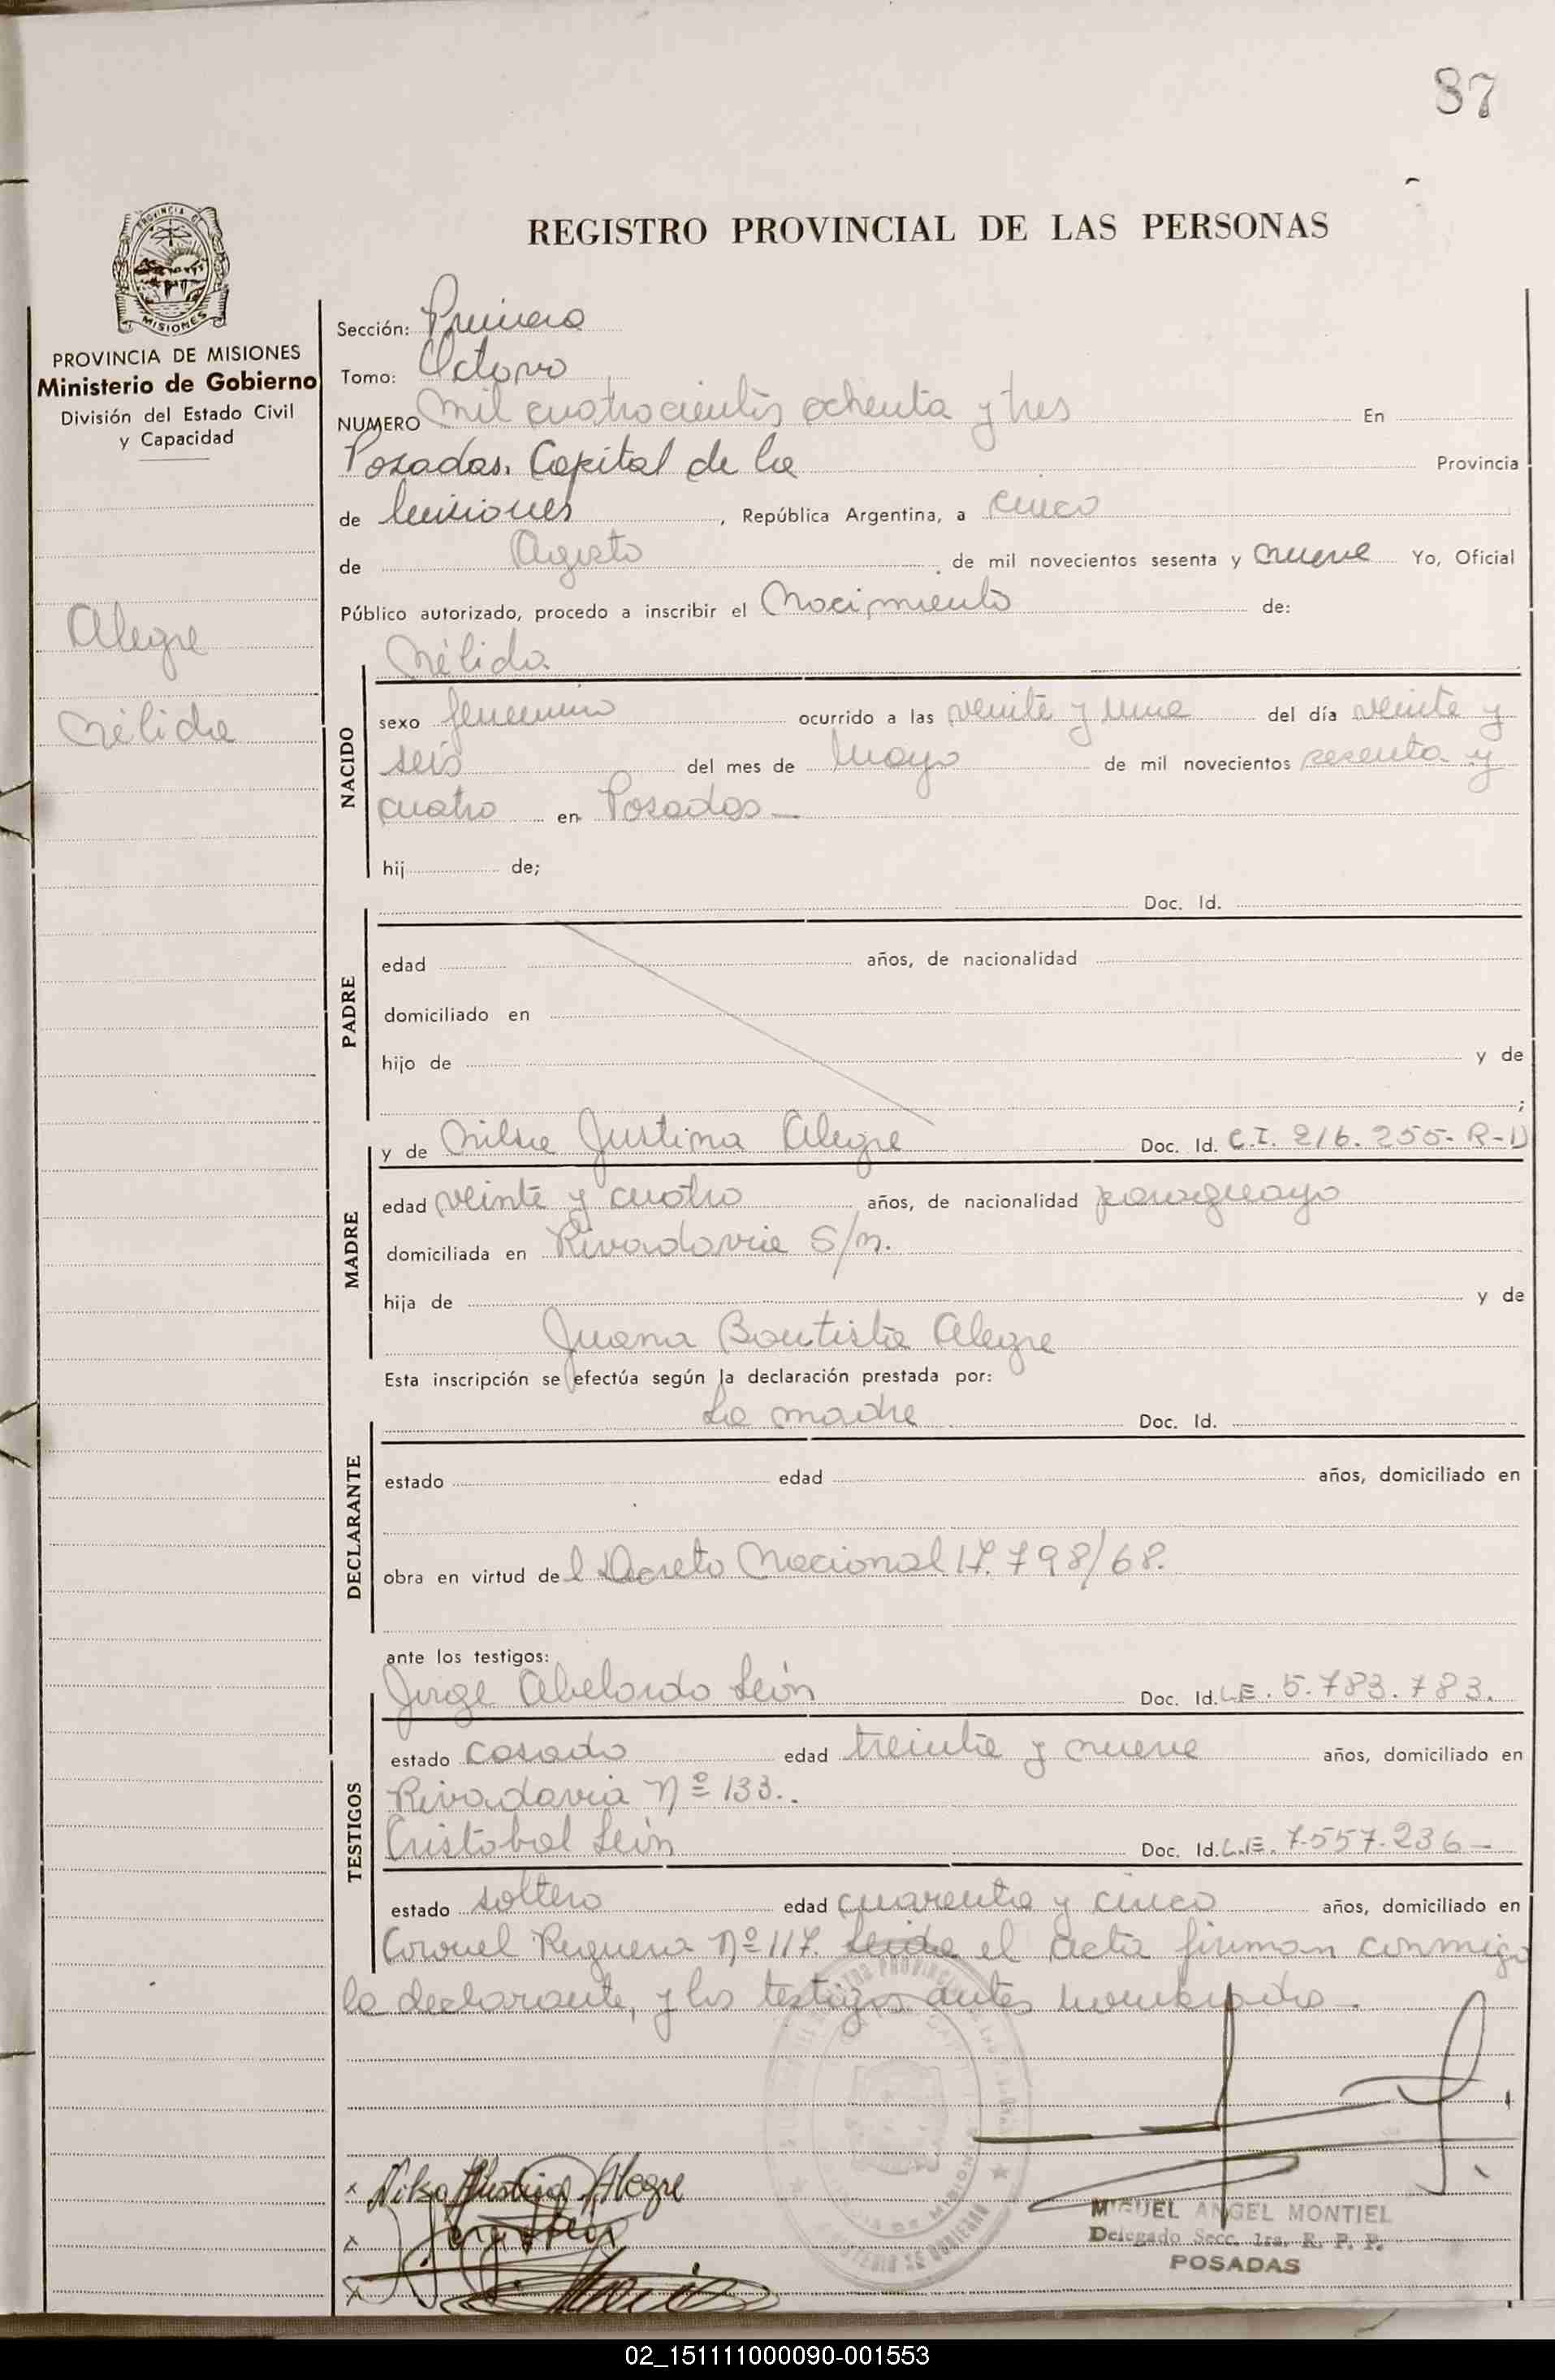 87
REGISTRO PROVINCIAL DE LAS PERSONAS
PROVINCIA DE MISIONES
Ministerio de Gobierno
División del Estado Civil
y Capacidad
Alegre
Nélida
Sección: Primera
Tomo: Octavo
NUMERO Mil cuatrocientos ochenta y tres En
Posadas. Capital de la Provincia
de Misiones, República Argentina, a cinco
de Agosto de mil novecientos sesenta y nueve Yo, Oficial
Público autorizado, procedo a inscribir el Nacimiento de:
Nélida
NACIDO
sexo femenino ocurrido a las veinte y una del día veinte y
seis del mes de Mayo de mil novecientos sesenta y
cuatro en Posadas —
hij de;
PADRE
Doc. Id.
edad años, de nacionalidad
domiciliado en
hijo de y de
;
MADRE
y de Nilsa Justina Alegre Doc. Id. C.I. 216.255-R-D
edad veinte y cuatro años, de nacionalidad paraguaya
domiciliada en Rivadavia S/n.
hija de y de
Juana Bautista Alegre
Esta inscripción se efectúa según la declaración prestada por:
DECLARANTE
La madre Doc. Id.
estado edad años, domiciliado en
obra en virtud del Decreto Nacional 17.798/68.
ante los testigos:
TESTIGOS
Jorge Abelardo León Doc. Id. L.E. 5.783.783.
estado casado edad treinta y nueve años, domiciliado en
Rivadavia Nº 133.
Cristobal León Doc. Id. L.E. 7.557.236 —
estado soltero edad cuarenta y cinco años, domiciliado en
Coronel Reguera Nº 117. Leida el acta firman conmigo
la declarante, y los testigos antes nombrados —.
x Nilsa Justina Alegre
x Jorge León
x
MIGUEL ANGEL MONTIEL
Delegado Secc. 1ra. R. P. P.
POSADAS
02_151111000090-001553